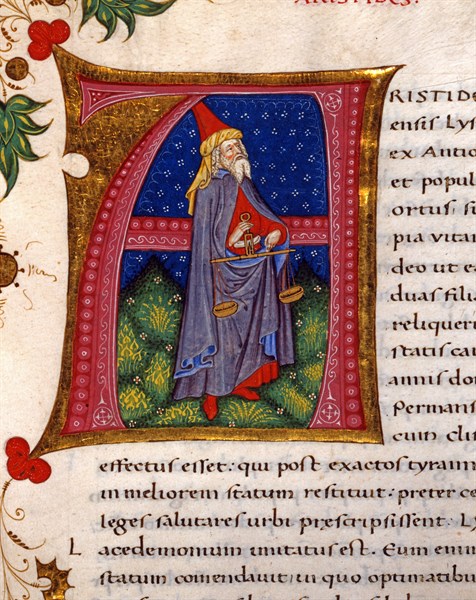 ARISTIDES.
ARISTID
ensis Lys
ex Antio
et popul
ortus
pia vitan
deo ut e
duas filı
reliqueri
statis ca
annis don
Permans
cum clis
effectus esset: qui post exactos tyrann
in meliorem statum restituit: preter ce
leges salutares urbi præscripsissent: Ly
Lacedemonium imitatus est. Eum emin
statum comendavit: in quo optimatib